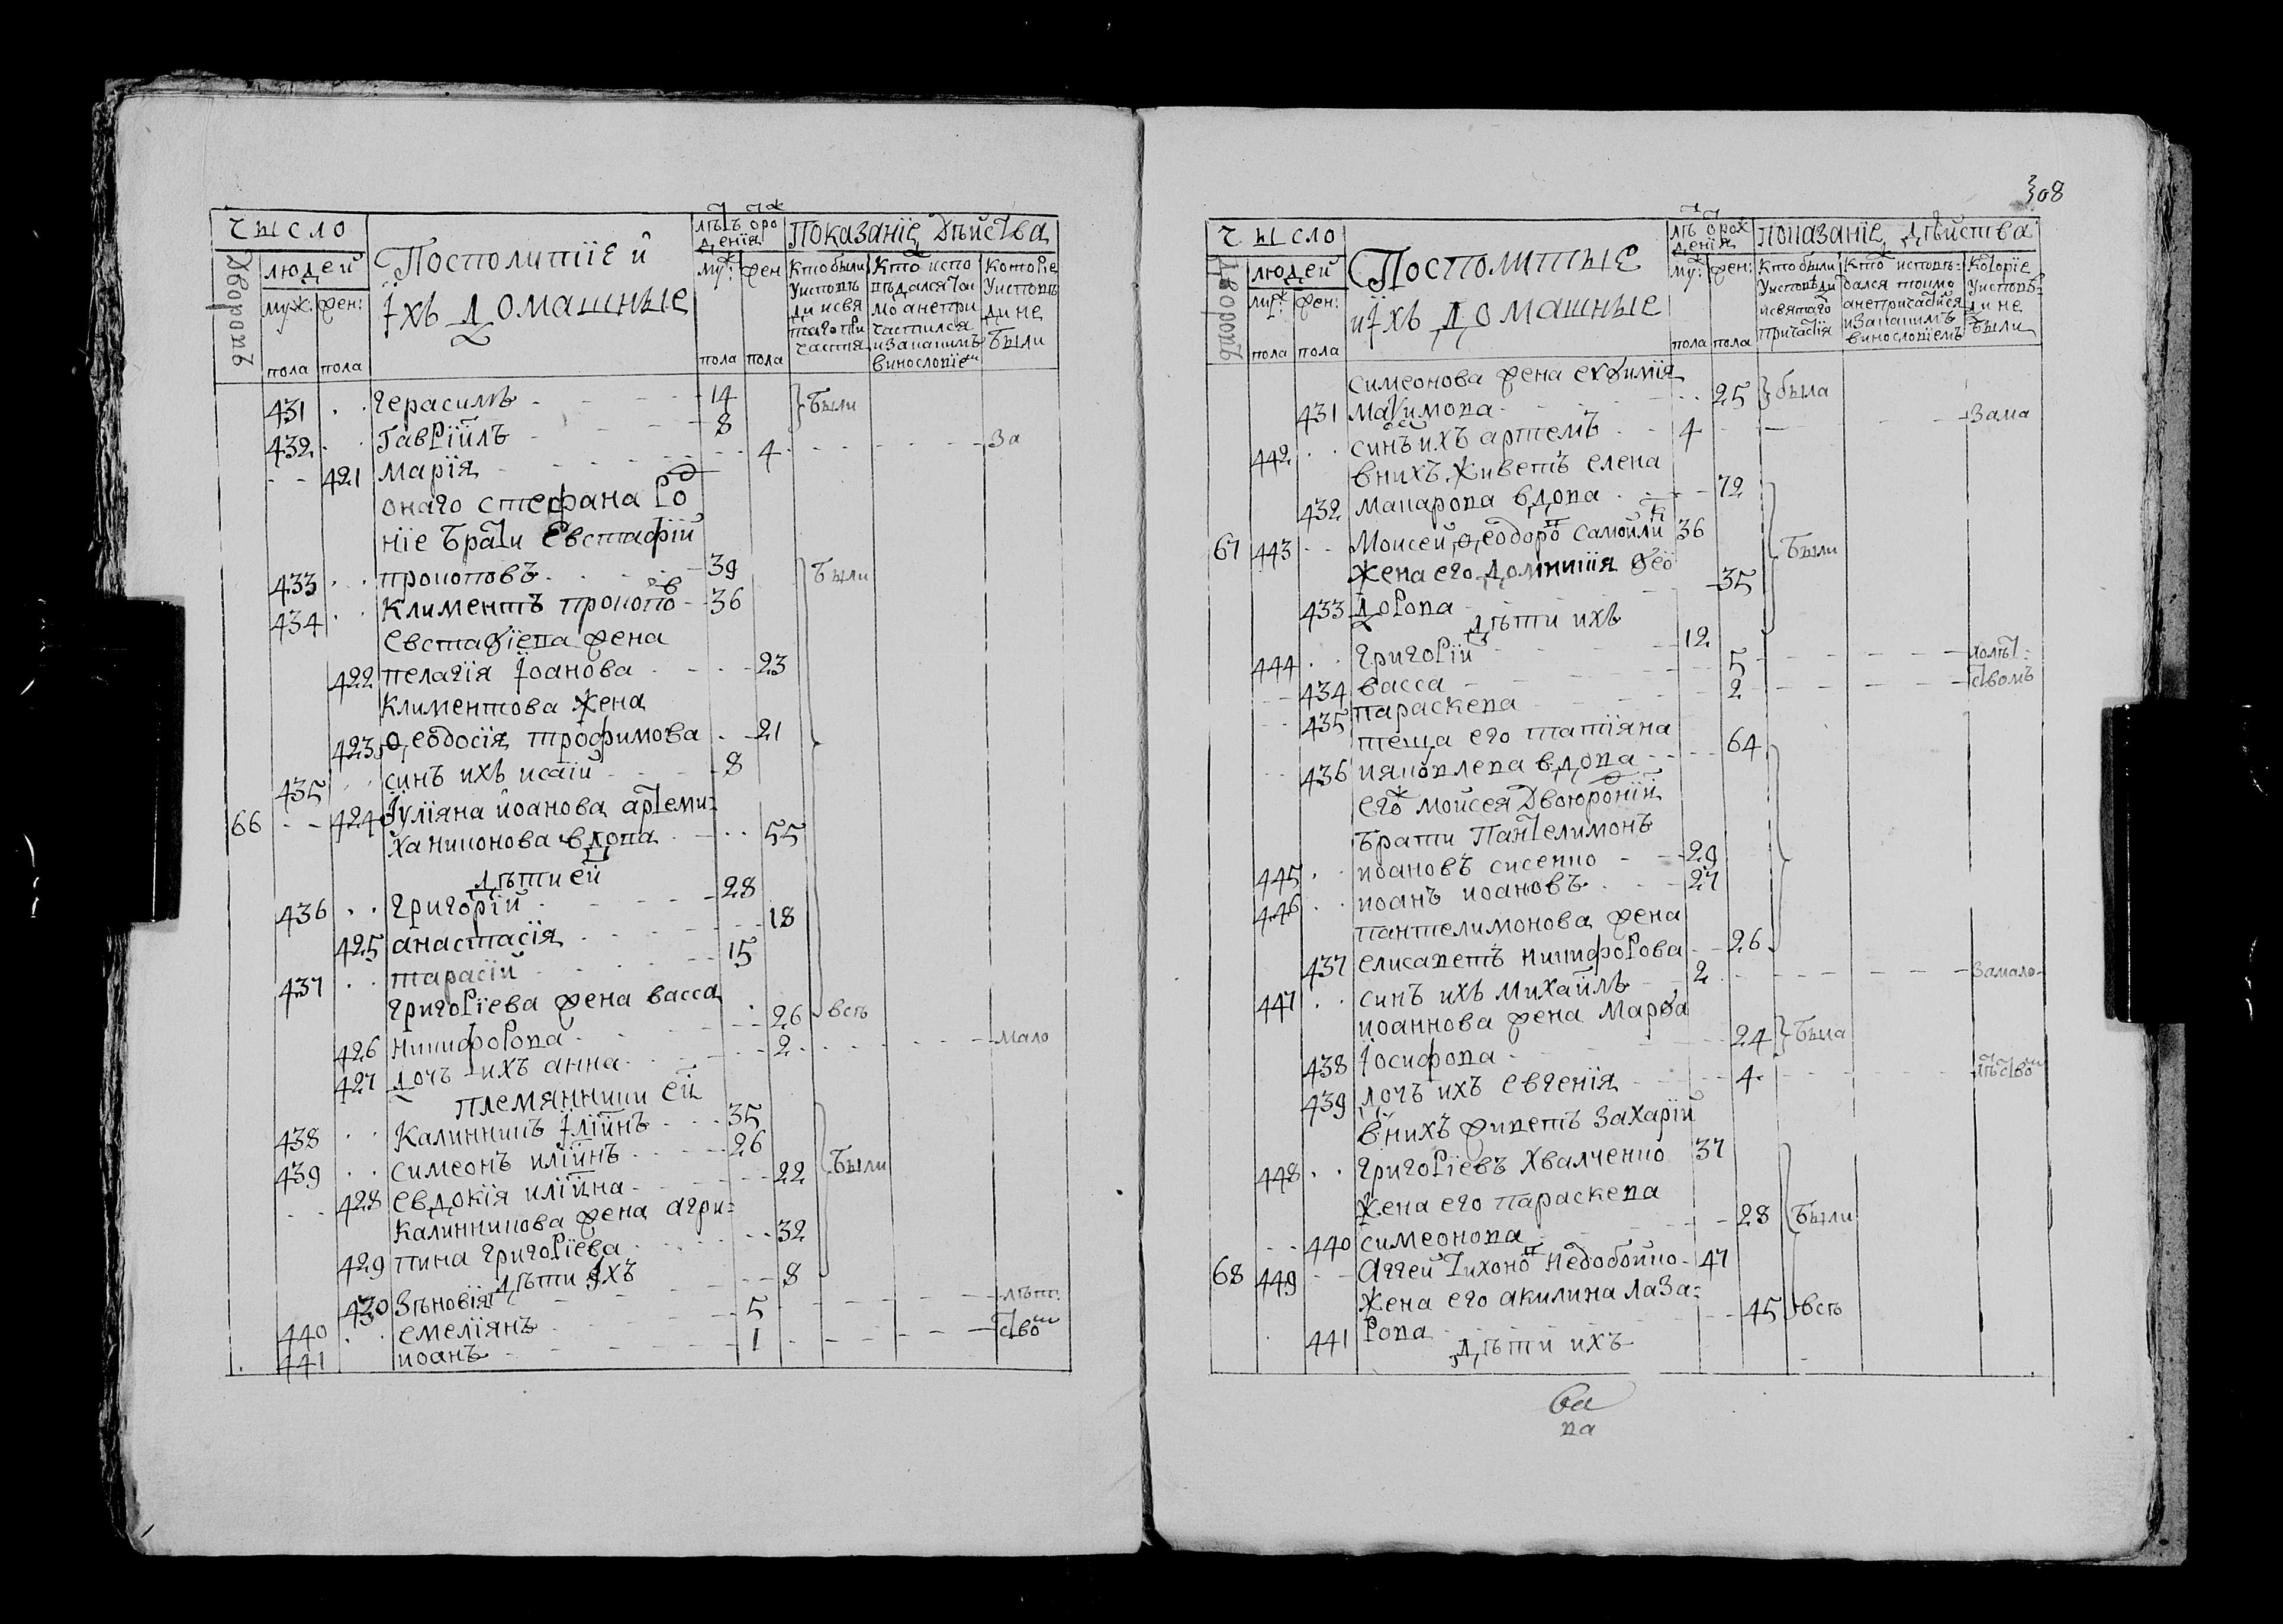 Число
Дворовъ
людей
муж: пола
жен: пола
Посполитіе й
їхъ домашные
лѣтъ о рож
денія
муж: пола
жен пола
Показаніе Дѣйства
Кто были
у исповѣ
ди и свя
таго при
частія
Кто испо
вѣдался то
мо а не при
частился
и за какимъ
винословіем
которіе
у исповѣ
ди не
были
431 Герасимъ 14 были
432 Гавріилъ 8
421 Марія 4 за
онаго Стефана род
ніе брати Евстафій
433 прокоповъ 39 были
434 Климентъ прокоповъ 36
Евстафіева жена
422 пелагія Іоанова 23
Климентова жена
423 Ѳеодосія трофимова 21
435 синъ ихъ исаій 8
66 424 Іуліяна иоанова артеми:
ха никонова вдова 55
дѣти ей
436 Григорій 28
425 анастасія 18
437 тарасій 15
Григоріева жена васса
426 никифорова 26 всѣ
427 дочъ ихъ анна 2 мало
племянники ей
438 Калинникъ Іліинъ 35
439 симеонъ иліинъ 26 были
428 евдокія иліина 22
Калинникова жена агри:
429 пина григоріева 32
дѣти їхъ
430 Зѣновія 8
440 емеліянъ 5 лѣт:
441 иоанъ 1 ством
308
Число
Дворовъ
людей
муж: пола
жен: пола
Посполитые
и їхъ домашные
лѣтъ о рож
денія
муж: пола
жен: пола
показаніе дѣйства
Кто были
у исповѣди
и святаго
причастія
Кто исповѣ:
дался токмо
а не причастися
и за какимъ
винословіемъ
которіе
у исповѣ:
ди не
были
симеонова жена евфимія
431 Максимова 25 была
442 синъ ихъ артемъ 4 за ма
в нихъ живетъ елена
432 макарова вдова 72
67 443 Моисей Ѳеодоров самойлик 36 были
жена его домникія фео
433 дорова 35
дѣти ихъ
444 григорій 12
434 васса 5 колѣт:
435 параскева 2 ствомъ
теща его татіяна
436 ияковлева вдова 64
его ж моисея двоюродній
брати Пантелимонъ
445 иоановъ сисенко 29
446 иоанъ иоановъ 27
пантелимонова жена
437 елисаветъ никифорова 26
447 синъ ихъ михаилъ 2 за мало-
иоаннова жена Марфа
438 Іосифова 24 была
439 дочъ ихъ евгенія 4 лѣтством
в нихъ живетъ захарій
448 григоріевъ хвалченко 37
жена его параскева
440 симеонова 28 были
68 449 Аггей Тихонов недобойко 47
жена его акилина лаза:
441 рова 45 всѣ
дѣти ихъ
ва